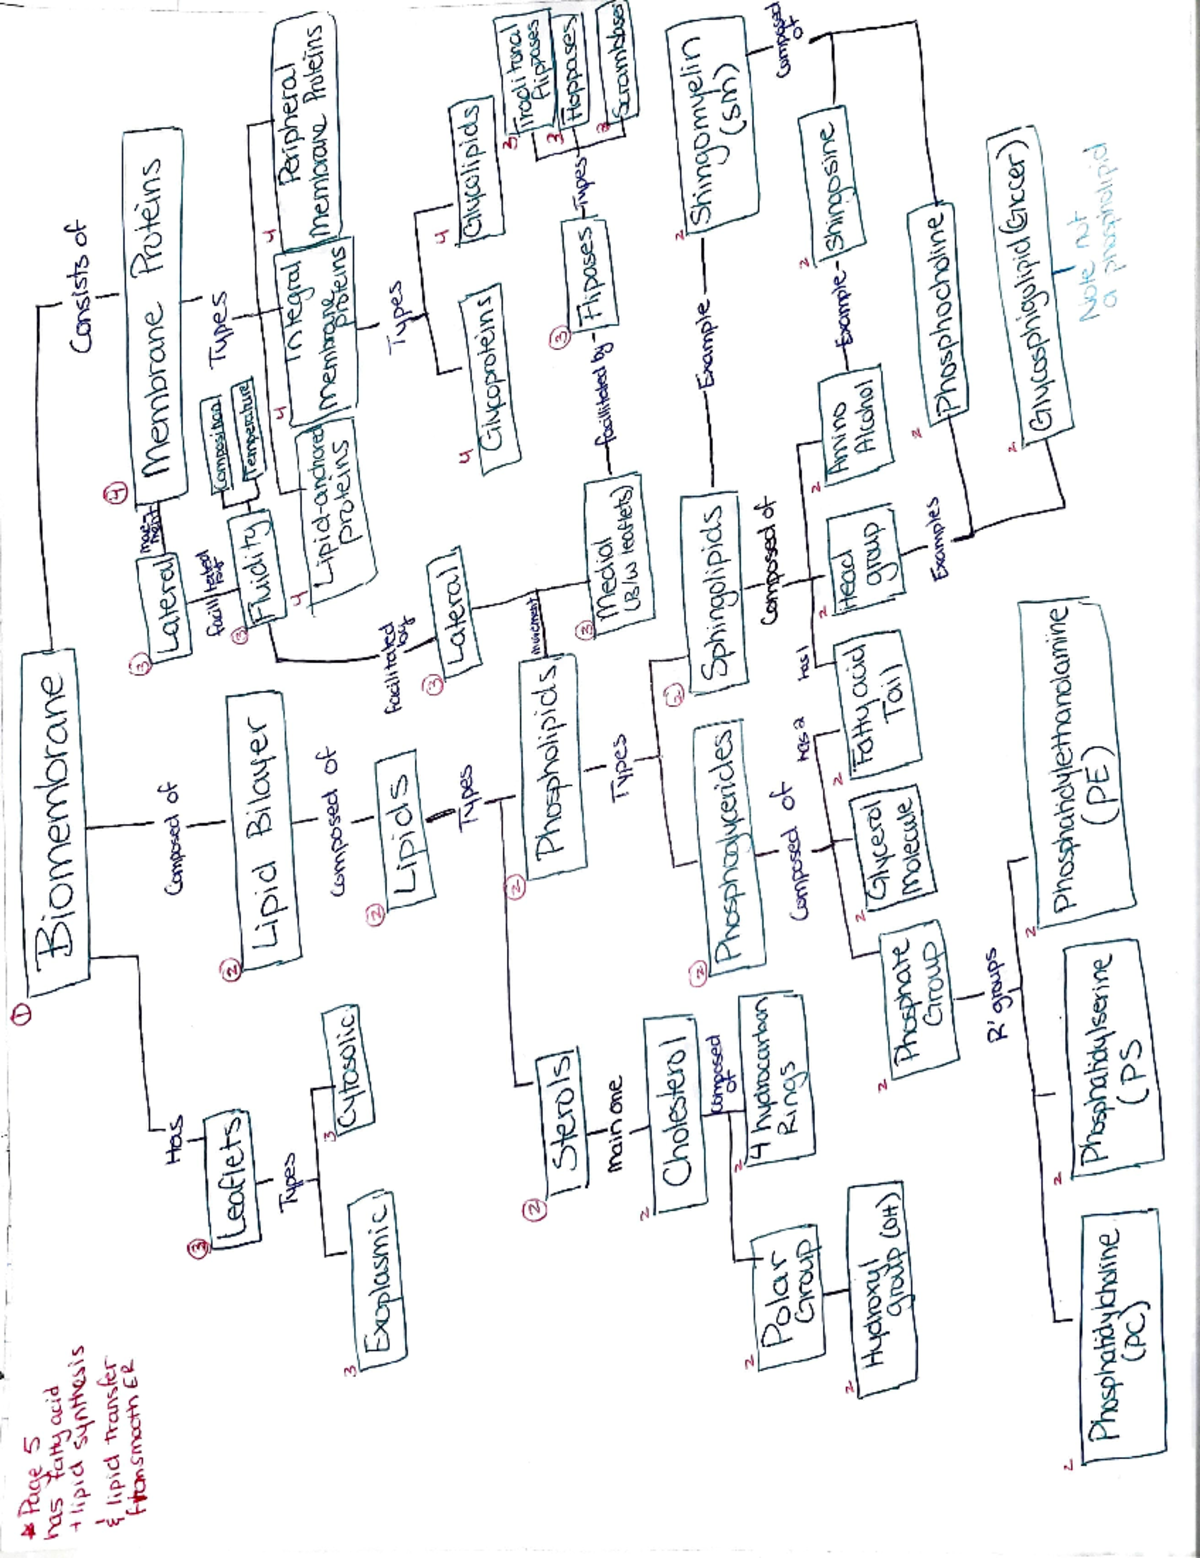 * Page 5
has fatty acid
+ lipid synthesis
& lipid transfer
from smooth ER
1
Biomembrane
Has
Composed of
Consists of
3
Leaflets
Types
3
Exoplasmic
3
Cytosolic
2
Lipid Bilayer
Composed of
2
Lipids
Types
4
Membrane Proteins
movement
3
Lateral
facilitated
by
3
Fluidity
Composition
Temperature
Types
4
Lipid-anchored
proteins
4
Integral
Membrane
proteins
4
Peripheral
Membrane Proteins
Types
4
Glycoproteins
4
Glycolipids
facilitated
by
3
Lateral
movement
3
Medial
(B/w leaflets)
facilitated by
3
Flipases
Types
3
Traditional
flippases
3
Floppases
3
Scramblases
2
Sterols
main one
2
Cholesterol
composed
of
2
Polar
Group
2
Hydroxyl
group (OH)
2
4 hydrocarbon
Rings
2
Phospholipids
Types
2
Phosphoglycerides
Composed of
2
Phosphate
Group
2
Glycerol
Molecule
has 2
2
Fatty acid
Tail
has 1
R' groups
2
Phosphatidylcholine
(PC)
2
Phosphatidylserine
(PS
2
Phosphatidylethanolamine
(PE)
2
Sphingolipids
Composed of
2
Head
group
2
Amino
Alcohol
Example
2
Shingosine
Example
2
Shingomyelin
(SM)
Composed
of
Examples
2
Phosphocholine
2
Glycosphigolipid (Glccer)
Note not
a phospholipid